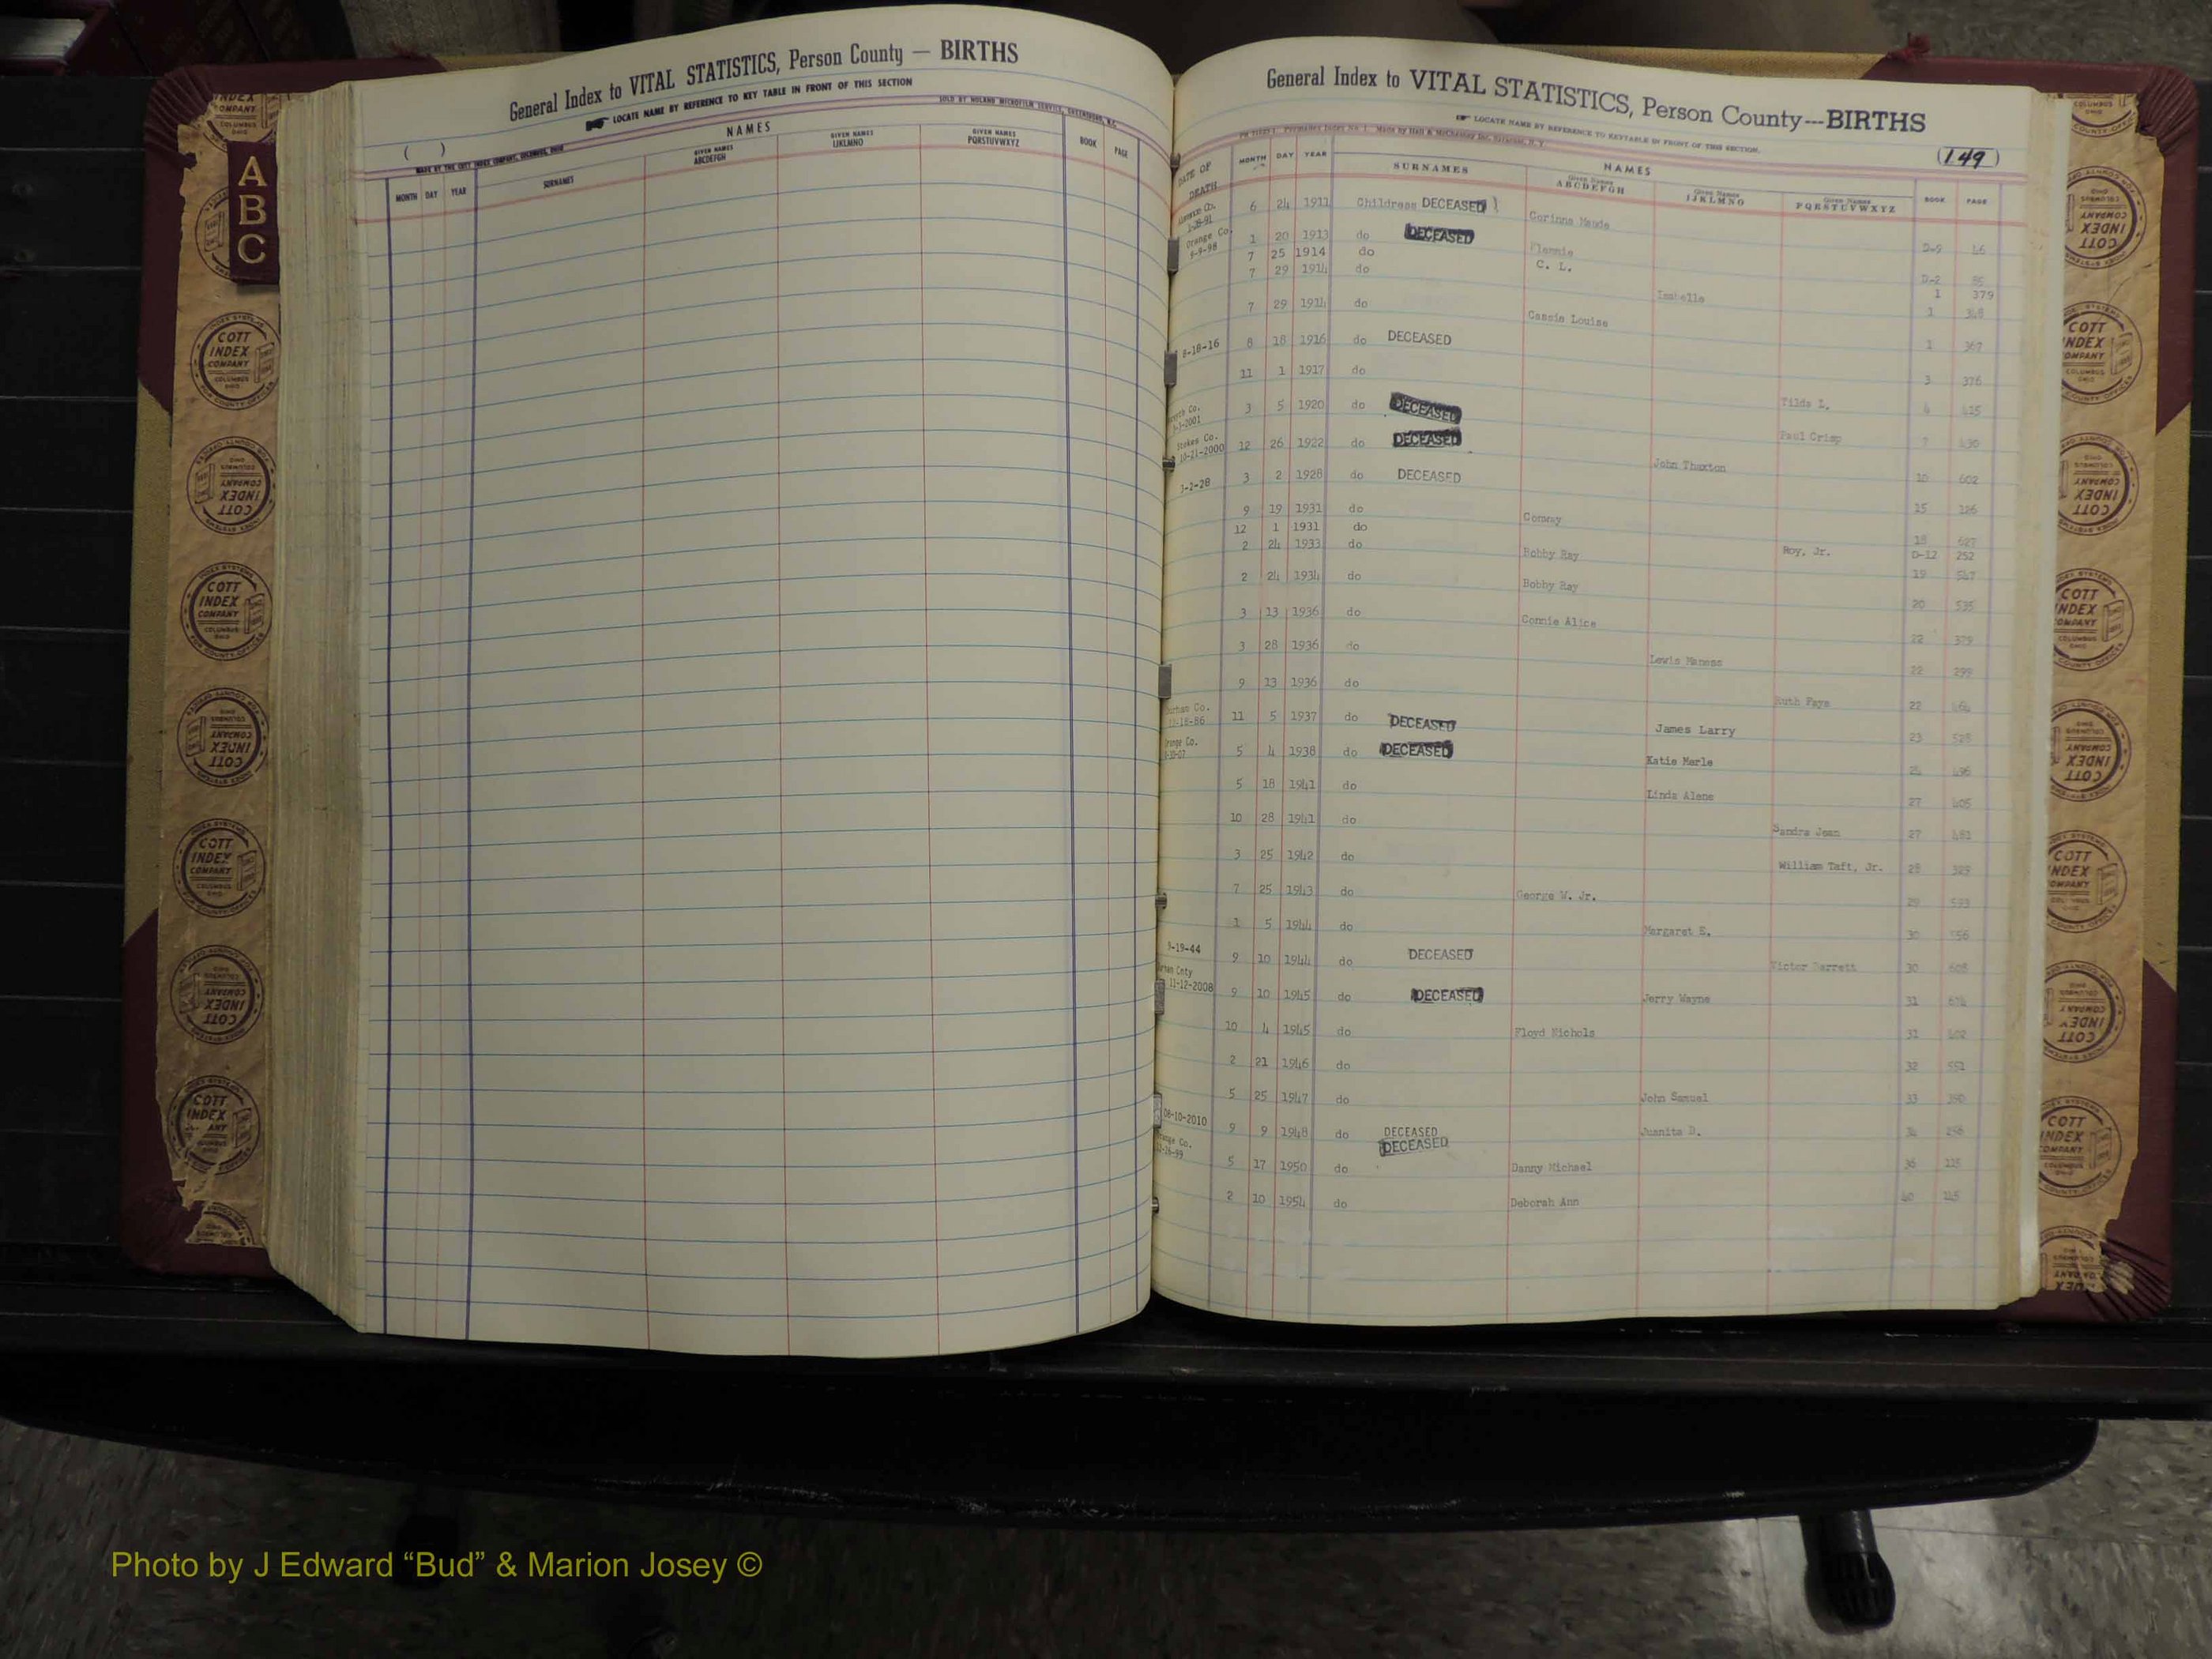 General Index to VITAL STATISTICS, Person County — BIRTHS
LOCATE NAME BY REFERENCE TO KEY TABLE IN FRONT OF THIS SECTION
SOLD BY NOLAND MICROFILM SERVICE, GREENSBORO, N.C.
( )
MADE BY THE COTT INDEX COMPANY, COLUMBUS, OHIO
NAMES
MONTH DAY YEAR SURNAMES GIVEN NAMES ABCDEFGH GIVEN NAMES IJKLMNO GIVEN NAMES PQRSTUVWXYZ BOOK PAGE
A
B
C
General Index to VITAL STATISTICS, Person County---BIRTHS
LOCATE NAME BY REFERENCE TO KEYTABLE IN FRONT OF THIS SECTION.
(149)
NAMES
DATE OF DEATH MONTH DAY YEAR SURNAMES Given Names ABCDEFGH Given Names IJKLMNO Given Names PQRSTUVWXYZ BOOK PAGE
6 24 1911 Childress DECEASED Corinna Maude D-9 46
Orange Co. 9-9-98 1 20 1913 do DECEASED Flemmie D-2
7 25 1914 do C. L. 1 379
7 29 1914 do Isabelle 1 348
7 29 1914 do Cassie Louise 1 367
8-18-16 8 18 1916 do DECEASED 3 376
11 1 1917 do Tilda L. 4 415
3 5 1920 do DECEASED Paul Crisp 7 430
Stokes Co. 10-21-2000 12 26 1922 do DECEASED John Thaxton 10 602
3-2-28 3 2 1928 do DECEASED 15 126
9 19 1931 do Conway 18 627
12 1 1931 do Roy, Jr. D-12 252
2 24 1933 do Bobby Ray 19 547
2 24 1934 do Bobby Ray 20 535
3 13 1936 do Connie Alice 22 379
3 28 1936 do Lewis Maness 22 299
9 13 1936 do Ruth Faye 22
Durham Co. 12-18-86 11 5 1937 do DECEASED James Larry 23 528
Orange Co. 5 4 1938 do DECEASED Katie Merle 496
5 18 1941 do Linda Alene 27 405
10 28 1941 do Sandra Jean 27 481
3 25 1942 do William Taft, Jr. 28 329
7 25 1943 do George W. Jr. 29 593
1 5 1944 do Margaret E. 30 556
9-19-44 9 10 1944 do DECEASED Victor Barrett 30 608
11-12-2008 9 10 1945 do DECEASED Jerry Wayne 31
10 4 1945 do Floyd Nichols 31 402
2 21 1946 do 32 551
5 25 1947 do John Samuel 33 390
08-10-2010 9 9 1948 do DECEASED Juanita D. 34 298
Orange Co. DECEASED
5 17 1950 do Danny Michael 36 115
2 10 1954 do Deborah Ann 40 145
COTT INDEX COMPANY COLUMBUS OHIO
Photo by J Edward “Bud” & Marion Josey ©